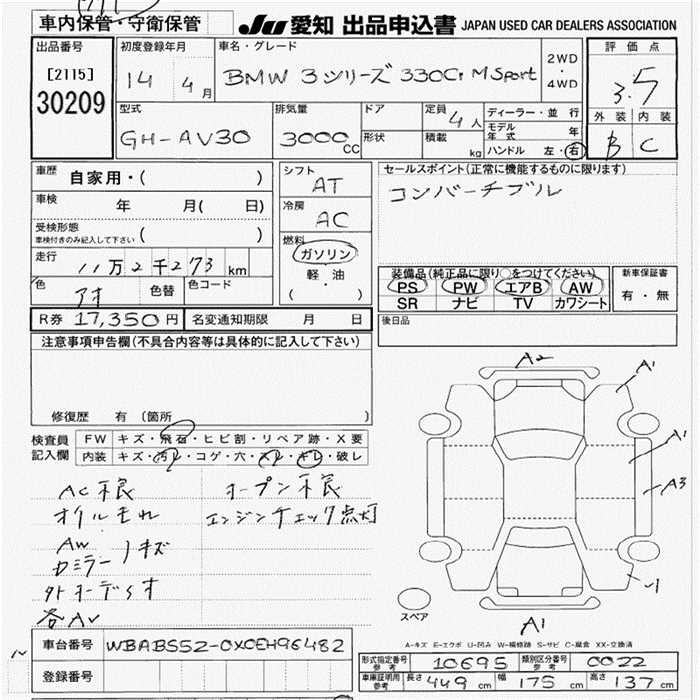 車内保管・守衛保管
JU 愛知 出品申込書 JAPAN USED CAR DEALERS ASSOCIATION
出品番号 [2115] 30209
初度登録年月 14 4月
車名・グレード BMW 3シリーズ 330Ci M Sport
2WD・4WD
評価点 3.5
外装 B 内装 C
型式 GH-AV30
排気量 3000CC
ドア 形状
定員 4人 積載 kg
ディーラー・並行
モデル年式 年
ハンドル 左・右
車歴 自家用・( )
車検 年 月( 日)
受検形態 車検付きのみ記入して下さい ( )
走行 11万2千273km
色 アオ 色替 色コード
R券 17,350円 名変通知期限 月 日
シフト AT
冷房 AC
燃料 ガソリン 軽・油 ( ・ )
セールスポイント(正常に機能するものに限ります)
コンバーチブル
装備品(純正品に限り○をつけてください)
PS PW エアB AW
SR ナビ TV カワシート
新車保証書 有・無
後日品
注意事項申告欄(不具合内容等は具体的に記入して下さい)
修復歴 有 (箇所 )
検査員記入欄
FW キズ・飛石・ヒビ割・リペア跡・X要
内装 キズ・汚れ・コゲ・穴・スレ・キレ・破レ
AC不良 オープン不良
オイルモれ エンジンチェック点灯
AW
ドミラー キズ
外オーディオ
各AU
A2
A1
A1
A3
A1
スペア
A-キズ E-エクボ U-凹み W-補修跡 S-サビ C-腐食 XX-交換済
車台番号 WBABS52-0X0EH96482
登録番号
形式指定番号 参考 10695 類別区分番号 参考 0022
車庫証明用 参考 長さ 449cm 幅 175cm 高さ 137cm